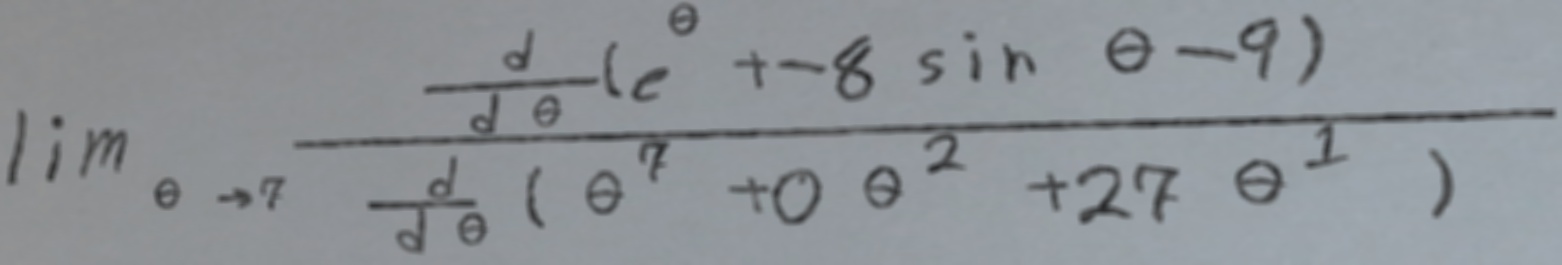 \lim_{\theta \to 7} \frac{\frac{d}{d\theta}(e^{\theta} + -8 \sin \theta - 9)}{\frac{d}{d\theta}(\theta^{7} + 0\theta^{2} + 27\theta^{1})}